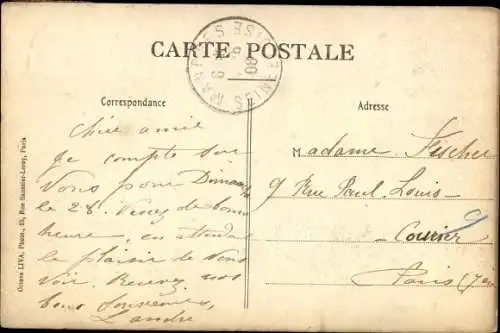 CARTE POSTALE
Correspondance
Adresse
Chère amie
Je compte sur
Vous pour Dimanche
le 28. Venez de bonne
heure, en attendant
le plaisir de vous
voir. Recevez nos
bons souvenirs,
Landre
Madame Fischer
9 Rue Paul-Louis-
Courier
Paris (7em
Octave LIVA, Photo., 15, Rue Saussier-Leroy, Paris